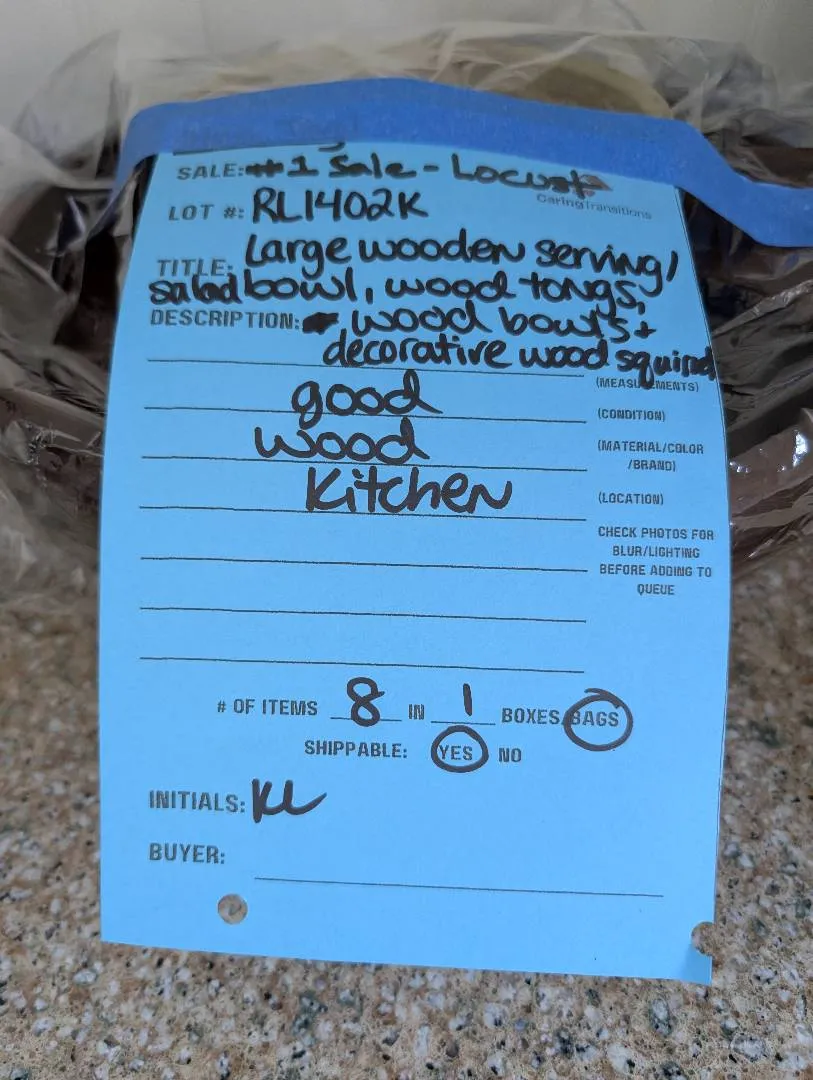 SALE: #1 Sale - Locust
CaringTransitions
LOT #: RL1402K
TITLE: Large wooden serving/
salad bowl, wood tongs,
DESCRIPTION: wood bowls +
decorative wood squirrel
(MEASUREMENTS)
good (CONDITION)
wood (MATERIAL/COLOR
/BRAND)
Kitchen (LOCATION)
CHECK PHOTOS FOR
BLUR/LIGHTING
BEFORE ADDING TO
QUEUE
# OF ITEMS 8 IN 1 BOXES/BAGS
SHIPPABLE: YES NO
INITIALS: KL
BUYER: